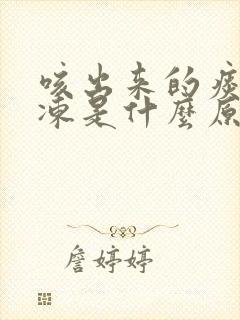 咳出来的痰
凍是什麼原
詹婷婷